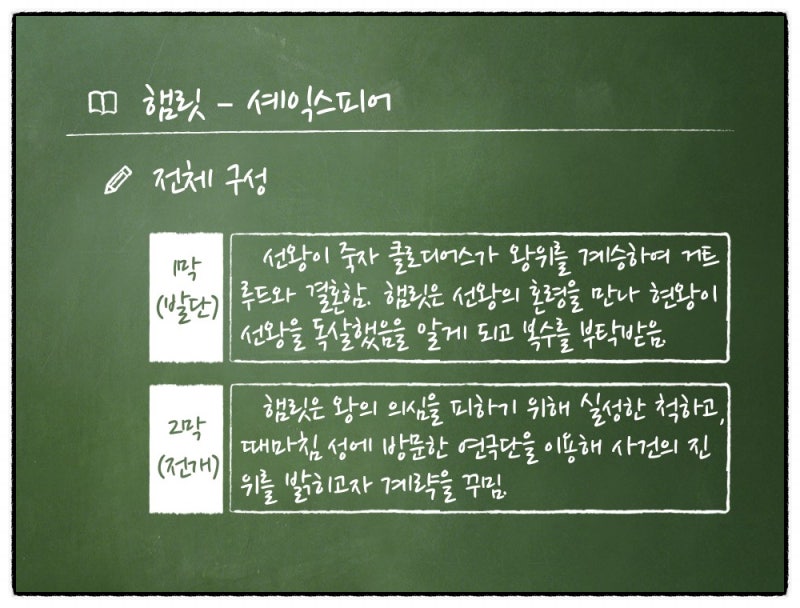 햄릿 - 셰익스피어
전체 구성
1막
(발단)
선왕이 죽자 클로디어스가 왕위를 계승하여 거트
루드와 결혼함. 햄릿은 선왕의 혼령을 만나 현왕이
선왕을 독살했음을 알게 되고 복수를 부탁받음.
2막
(전개)
햄릿은 왕의 의심을 피하기 위해 실성한 척하고,
때마침 성에 방문한 연극단을 이용해 사건의 진
위를 밝히고자 계략을 꾸밈.